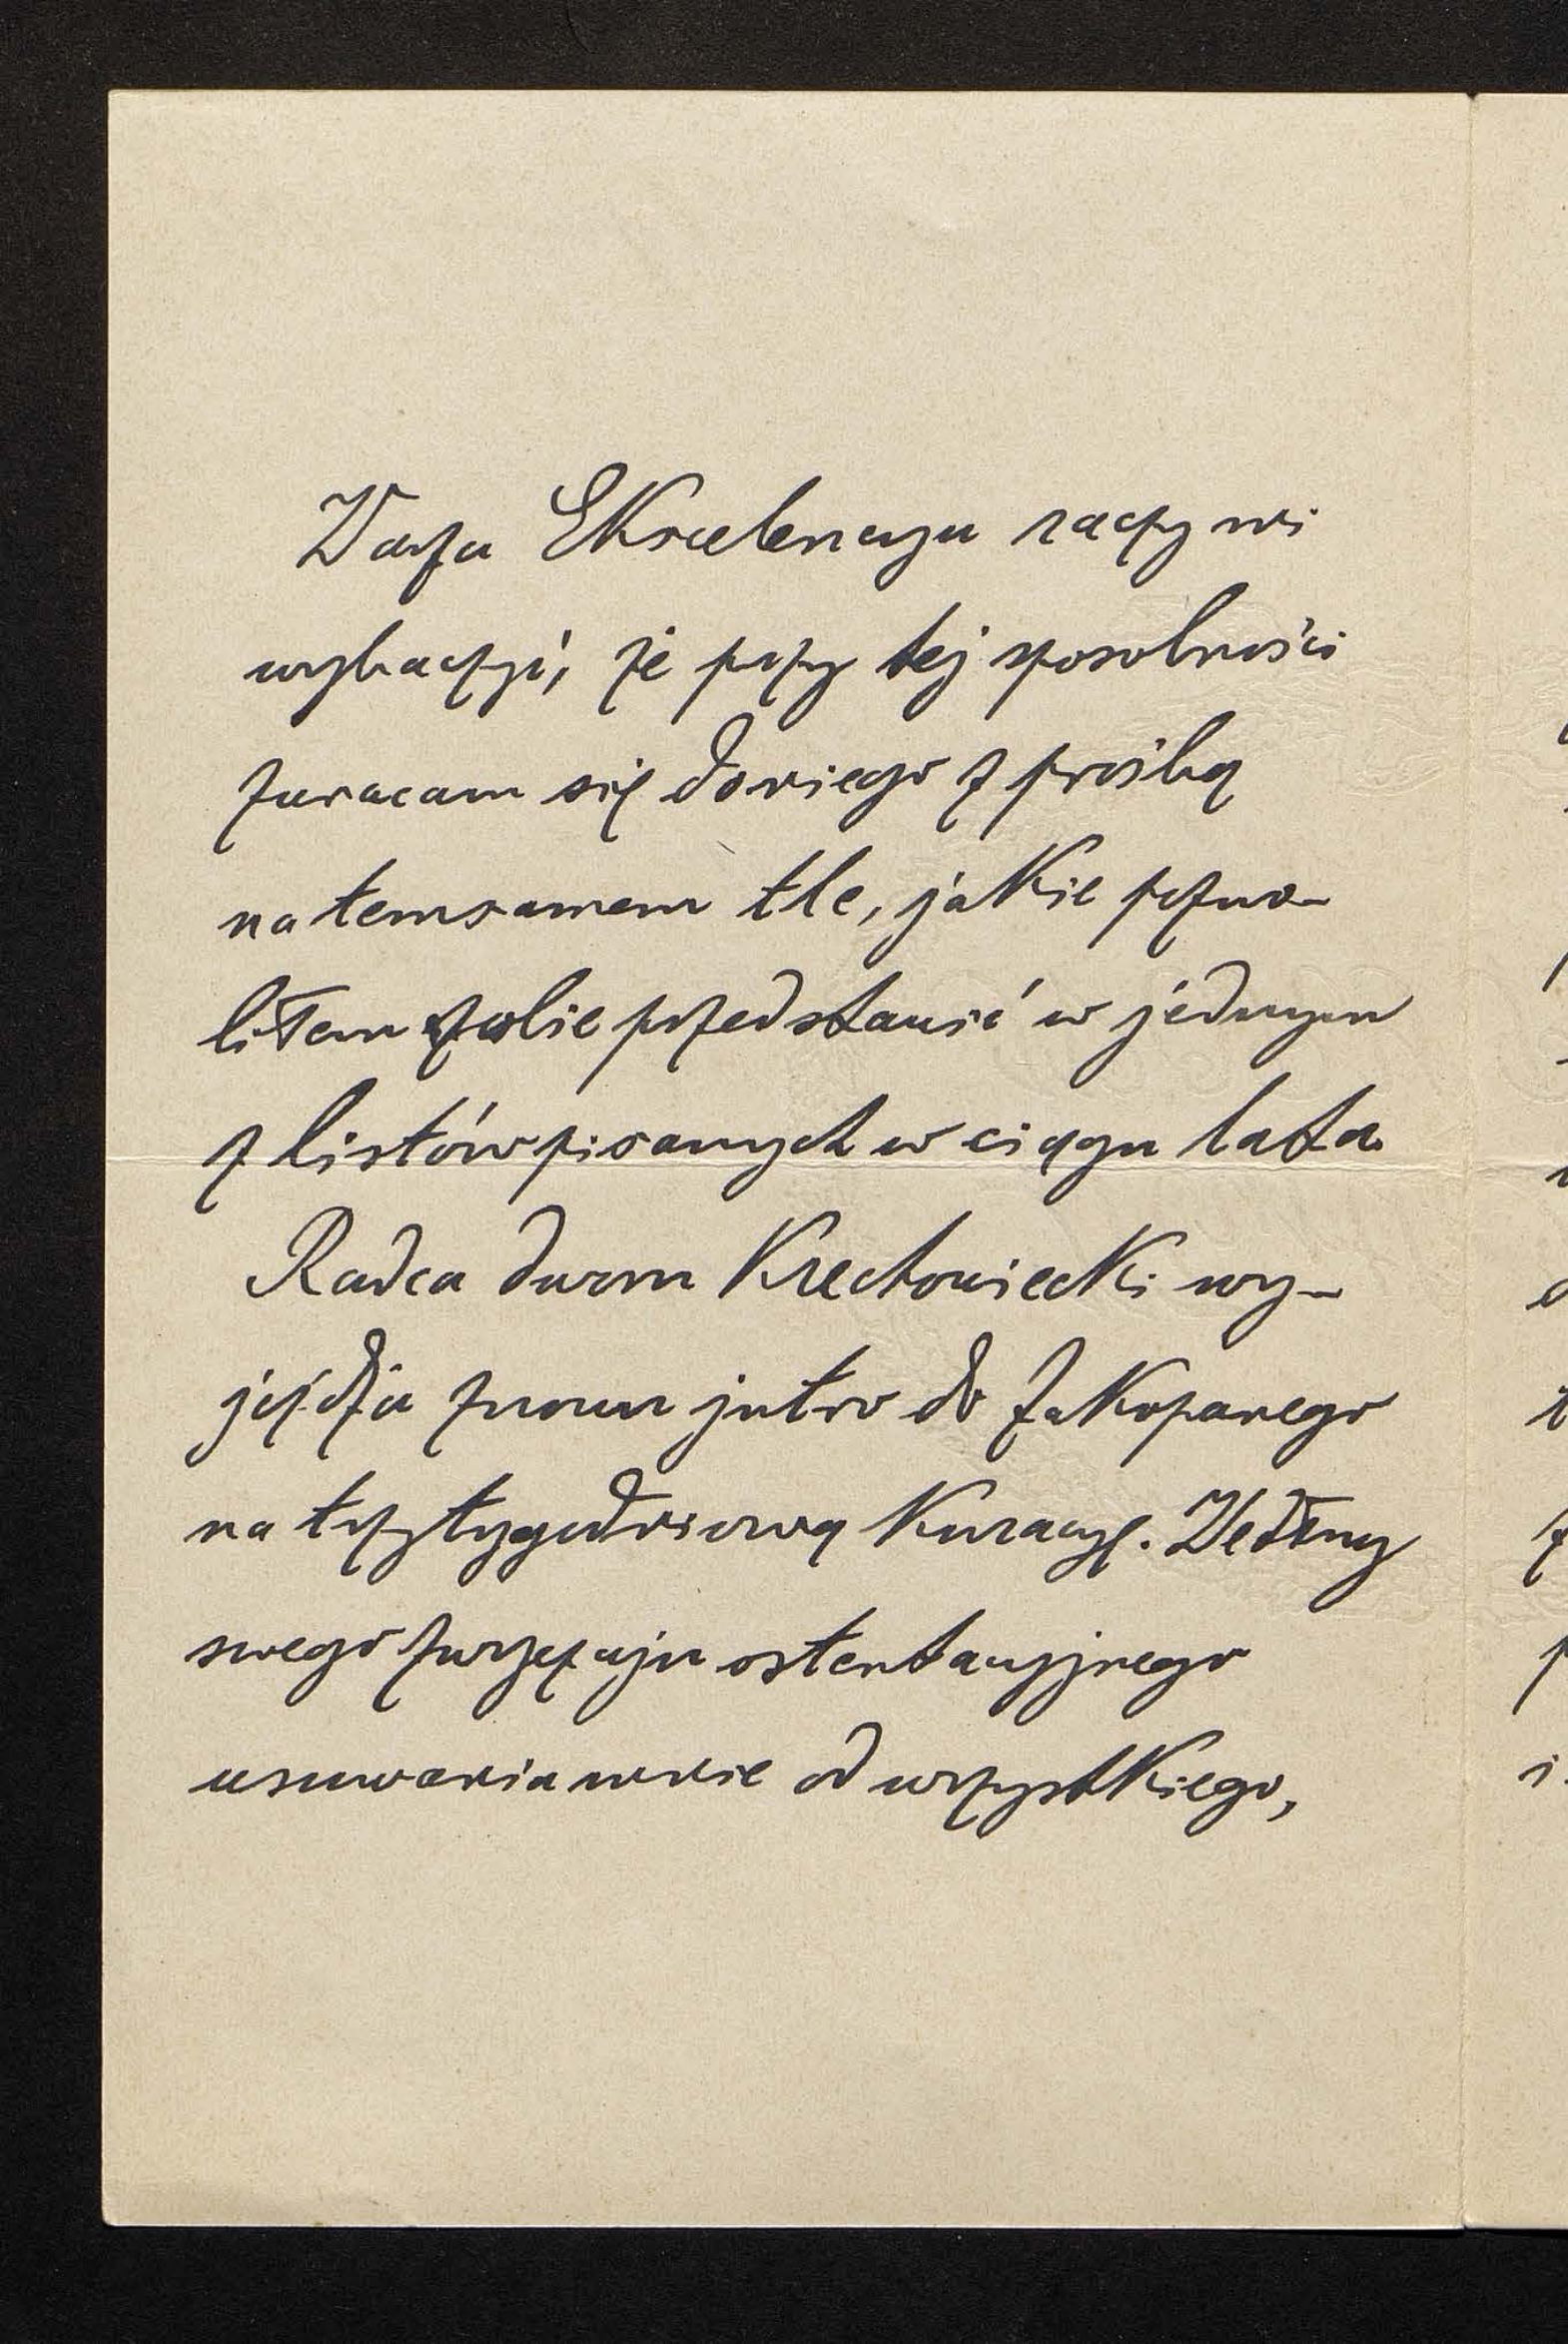 Wasza Ekscelencya raczy mi
wybaczyć, że przy tej sposobności
zwracam się doniego z prośbą
na temsamem tle, jakie pozwo-
liłem sobie przedstawić w jednym
z listów pisanych w ciągu lata.
Radca dworu Krechowiecki wy-
jeżdża znowu jutro do Zakopanego
na trzytygodniową kuracyę. Według
swego zwyczaju ostentacyjnego
usuwania mnie od wszystkiego,